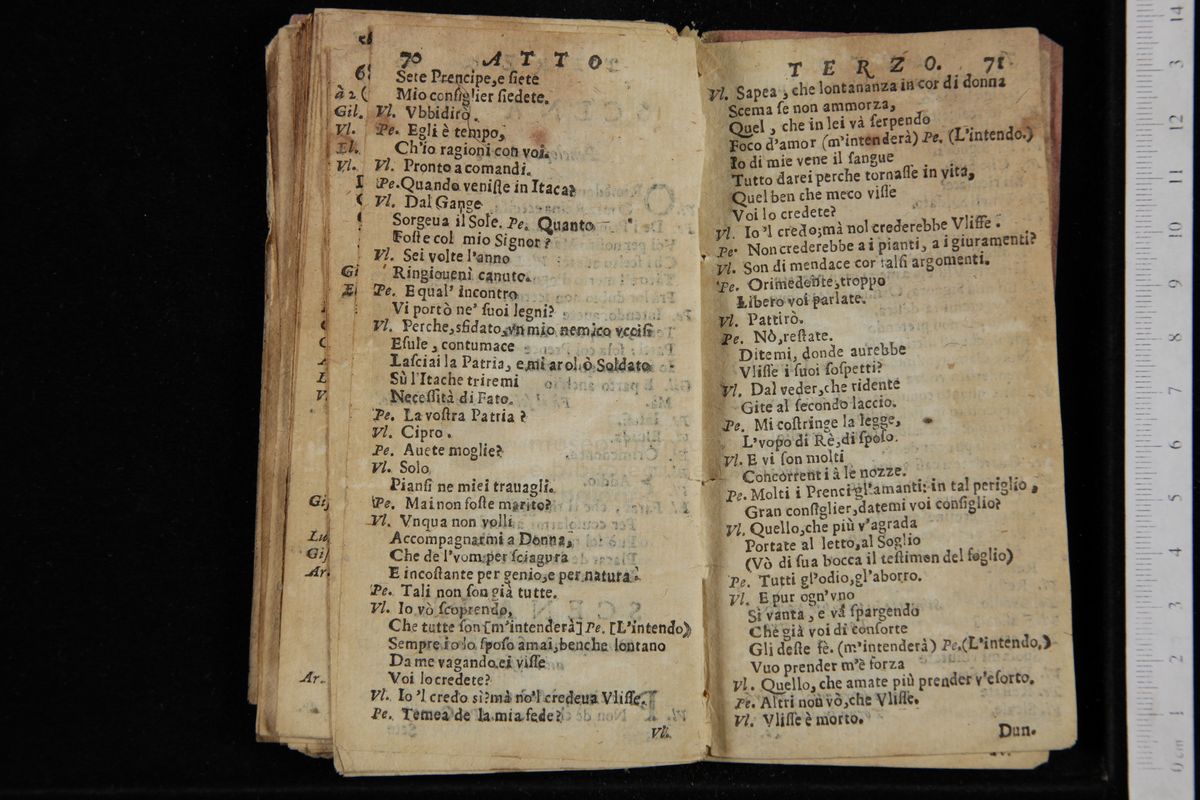 70 ATTO
Sete Prencipe, e siete
Mio consiglier siedete.
Vl. Vbbidirò.
Pe. Egli è tempo,
Ch'io ragioni con voi.
Vl. Pronto a comandi.
Pe. Quando veniste in Itaca?
Vl. Dal Gange
Sorgeua il Sole. Pe. Quanto
Foste col mio Signor?
Vl. Sei volte l'anno
Ringiouenì canuto.
Pe. E qual' incontro
Vi portò ne' suoi legni?
Vl. Perche, sfidato, vn mio nemico vccisi
Esule, contumace
Lasciai la Patria, e mi arolò Soldato
Sù l'Itache triremi
Necessità di Fato.
Pe. La vostra Patria?
Vl. Cipro.
Pe. Auete moglie?
Vl. Solo
Piansi ne miei trauagli.
Pe. Mai non foste marito?
Vl. Vnqua non volli
Accompagnarmi a Donna,
Che de l'vom per sciagura
E incostante per genio, e per natura.
Pe. Tali non son già tutte.
Vl. Io vò scoprendo,
Che tutte son [m'intenderà] Pe. [L'intendo)
Sempre io lo sposo amai, benche lontano
Da me vagando ei visse
Voi lo credete?
Vl. Io 'l credo sì? mà no'l credeua Vlisse.
Pe. Temea de la mia fede?
Vl.
TERZO. 71
Vl. Sapea, che lontananza in cor di donna
Scema se non ammorza,
Quel, che in lei và serpendo
Foco d'amor (m'intenderà) Pe. (L'intendo.)
Io di mie vene il sangue
Tutto darei perche tornasse in vita,
Quel ben che meco visse
Voi lo credete?
Vl. Io 'l credo; mà nol crederebbe Vlisse.
Pe. Non crederebbe a i pianti, a i giuramenti?
Vl. Son di mendace cor falsi argomenti.
Pe. Orimedente, troppo
Libero voi parlate.
Vl. Pattirò.
Pe. Nò, restate.
Ditemi, donde aurebbe
Vlisse i suoi sospetti?
Vl. Dal veder, che ridente
Gite al secondo laccio.
Pe. Mi costringe la legge,
L'vopo di Rè, di sposo.
Vl. E vi son molti
Concorrenti à le nozze.
Pe. Molti i Prenci gl'amanti: in tal periglio,
Gran consiglier, datemi voi consiglio?
Vl. Quello, che più v'agrada
Portate al letto, al Soglio
(Vò di sua bocca il testimon del foglio)
Pe. Tutti gl'odio, gl'aborro.
Vl. E pur ogn'vno
Si vanta, e và spargendo
Che già voi di consorte
Gli deste fè. (m'intenderà) Pe. (L'intendo.)
Vuo prender m'è forza
Vl. Quello, che amate più prender v'esorto.
Pe. Altri non vò, che Vlisse.
Vl. Vlisse è morto.
Dun-